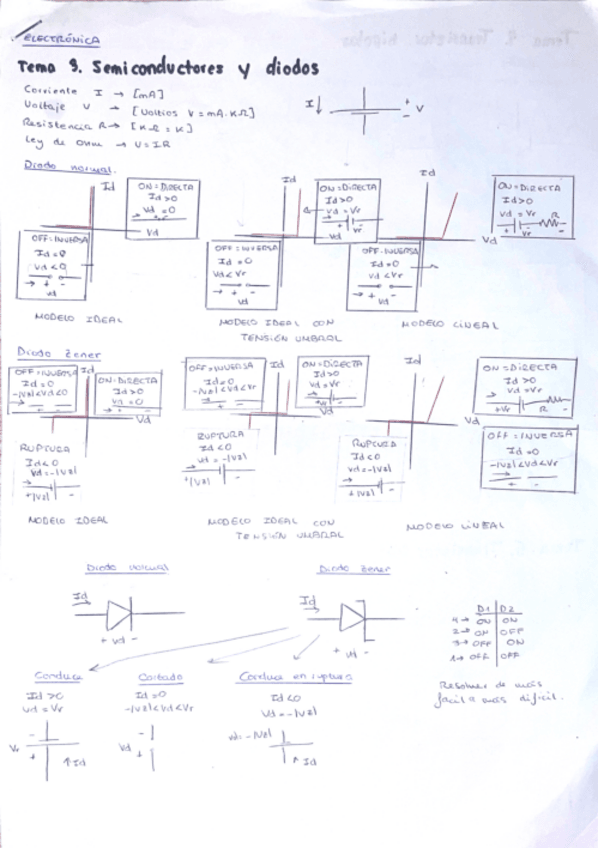 ELECTRÓNICA
Tema 3. Semiconductores y diodos
Corriente I → [mA]
Voltaje V → [Voltios V = mA·KΩ]
Resistencia R → [KΩ = K]
Ley de Ohm → V = I·R
I↓ + - V
Diodo normal.
Id Id Id
ON = DIRECTA
Id>0
Vd = 0
Vd
OFF = INVERSA
Id = 0
Vd < 0
+ -
Vd
MODELO IDEAL
ON = DIRECTA
Id>0
Vd = Vr
+ -
Vr
Vd
OFF = INVERSA
Id = 0
Vd < Vr
+ -
Vd
MODELO IDEAL CON
TENSIÓN UMBRAL
ON = DIRECTA
Id>0
Vd = Vr R
+ -
Vr
Vd
OFF = INVERSA
Id = 0
Vd < Vr
+ -
Vd
MODELO LINEAL
Diodo Zener
Id Id Id
OFF = INVERSA
Id = 0
-|Vz|<Vd<0
+ -
ON = DIRECTA
Id>0
Vd = 0
Vd
RUPTURA
Id<0
Vd = -|Vz|
+|Vz| -
MODELO IDEAL
OFF = INVERSA
Id = 0
-|Vz|<Vd<Vr
+ -
ON = DIRECTA
Id>0
Vd = Vr
Vd
RUPTURA
Id<0
Vd = -|Vz|
+|Vz| -
MODELO IDEAL CON
TENSIÓN UMBRAL
ON = DIRECTA
Id>0
Vd = Vr
+Vr R -
Vd
OFF = INVERSA
Id = 0
-|Vz|<Vd<Vr
+ -
RUPTURA
Id<0
Vd = -|Vz|
+|Vz| -
MODELO LINEAL
Diodo normal
Id
+ Vd -
Diodo Zener
Id
+ Vd -
D1 D2
4→ ON ON
2→ ON OFF
3→ OFF ON
1→ OFF OFF
Resolver de más
fácil a más difícil.
Conduce
Id > 0
Vd = Vr
-
Vr
+ ↑Id
Cortado
Id = 0
-|Vz|<Vd<Vr
-
Vd
+
Conduce en ruptura
Id < 0
Vd = -|Vz|
-
↑Id